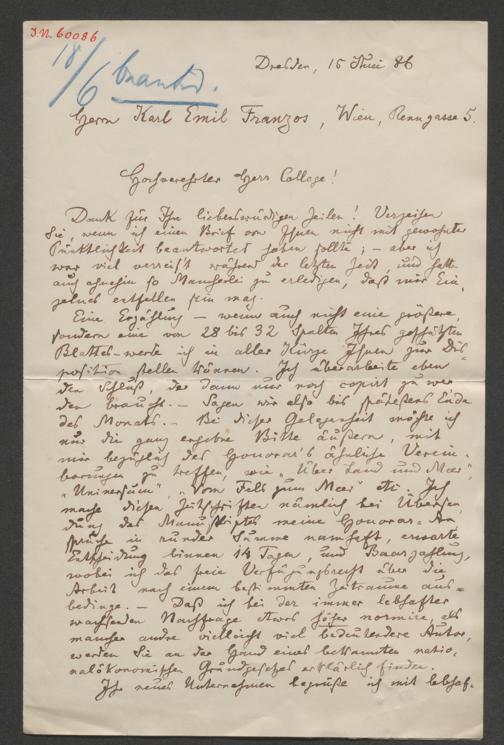 I.N. 60086
18/6 beantw.
Dresden, 15 Juni 86
Herrn Karl Emil Franzos, Wien, Renngasse 5.
Hochverehrter Herr College!
Dank für Ihre liebenswürdigen Zeilen! Verzeihen
Sie, wenn ich einen Brief von Ihnen nicht mit gewohnter
Pünktlichkeit beantwortet haben sollte; – aber ich
war viel verreis't während der letzten Zeit, und hatte
auch ohnehin so Mancherlei zu erledigen, daß mir Ein-
zelnes entfallen sein mag.
Eine Erzählung – wenn auch nicht eine größere,
sondern eine von 28 bis 32 Spalten Ihres geschätzten
Blattes – werde ich in aller Kürze Ihnen zur Dis-
position stellen können. Ich überarbeite eben
den Schluß, der dann nur noch copirt zu wer-
den braucht. – Sagen wir also bis spätestens Ende
des Monats. – Bei dieser Gelegenheit möchte ich
nur die ganz ergebne Bitte äußern, mit
mir bezüglich des Honorar's ähnliche Verein-
barungen zu treffen, wie "Über Land und Meer",
"Universum", "Vom Fels zum Meer" etc. Ich
mache diesen Zeitschriften nämlich bei Übersen-
dung des Manuskriptes meine Honorar-An-
sprüche in runder Summe namhaft, erwarte
Entscheidung binnen 14 Tagen, und Baarzahlung,
wobei ich das freie Verfügungsrecht über die
Arbeit nach einem bestimmten Zeitraume aus-
bedinge. – Daß ich bei der immer lebhafter
wachsenden Nachfrage etwas höher normire, als
mancher andre vielleicht viel bedeutendere Autor,
werden Sie an der Hand eines bekannten natio-
nalökonomischen Grundgesetzes erklärlich finden.
Ihr neues Unternehmen begrüße ich mit lebhaf-